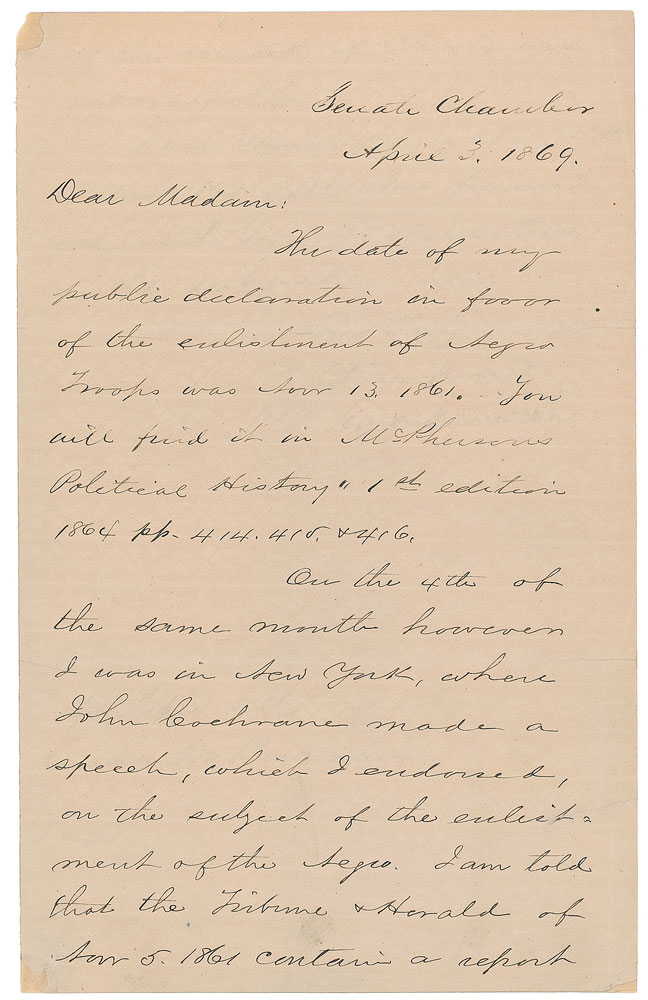 Senate Chamber
April 3. 1869.
Dear Madam:
The date of my
public declaration in favor
of the enlistment of Negro
Troops was Novr 13. 1861. You
will find it in McPhersons
Political History" 1st edition
1864 pp. 414. 415. & 416.
On the 4th of
the same month however
I was in New York, where
John Cochrane made a
speech, which I endorsed,
on the subject of the enlist=
ment of the Negro. I am told
that the Tribune & Herald of
Novr 5. 1861 contain a report